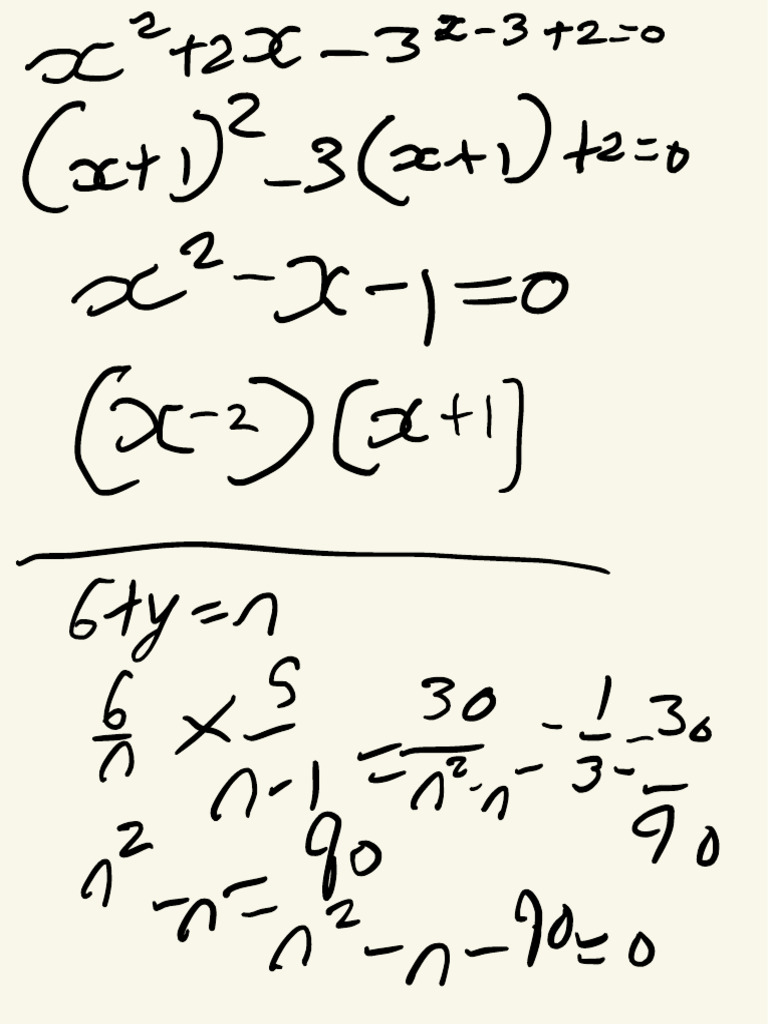 x² + 2x - 3^(x - 3 + 2 = 0)
(x+1)² - 3(x+1) + 2 = 0
x² - x - 1 = 0
(x-2)(x+1]
6 + y = n
6/n × 5/(n-1) = 30/(n²-n) = 1/3 = 30/90
n² - n = 90
n² - n - 90 = 0